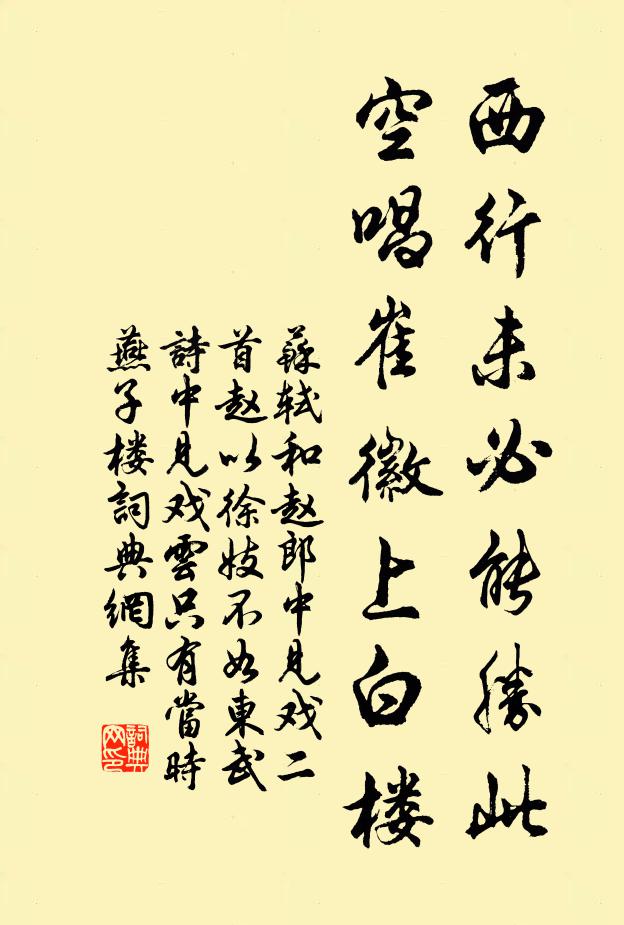 西行未必能勝此
空唱崔徽上白楼
蘇轼和赵郎中見戏二
首赵以徐妓不如東武
詩中見戏雲只有當時
燕子楼詞典網集
詞典
网印